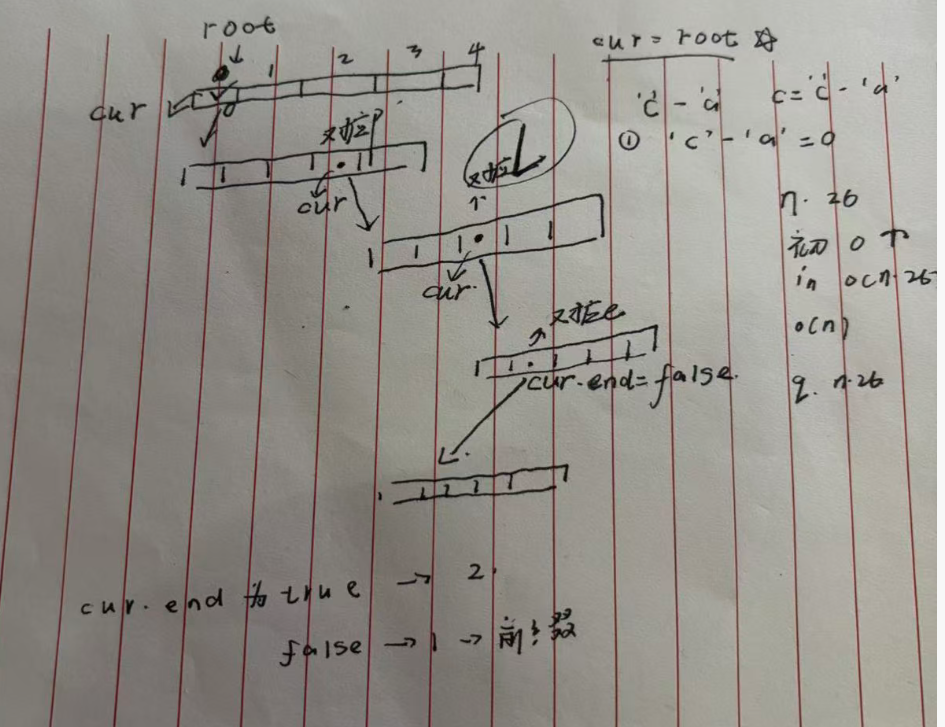 root
cur = root ☆
1 2 3 4
0
cur
'c' - 'a'
c = 'c' - 'a'
① 'c' - 'a' = 0
对应p
cur
对应L
cur.
n · 26
初 0 ↑
in o(n·26
o(n)
q. n·26
对应e
cur.end=false.
cur.end 为 true → 2.
false → 1 → 前缀